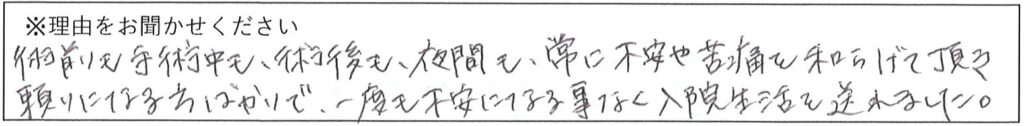 ※理由をお聞かせください
術前も手術中も、術後も、夜間も、常に不安や苦痛を和らげて頂き
頼りになる方ばかりで、一度も不安になる事なく入院生活を送れました。